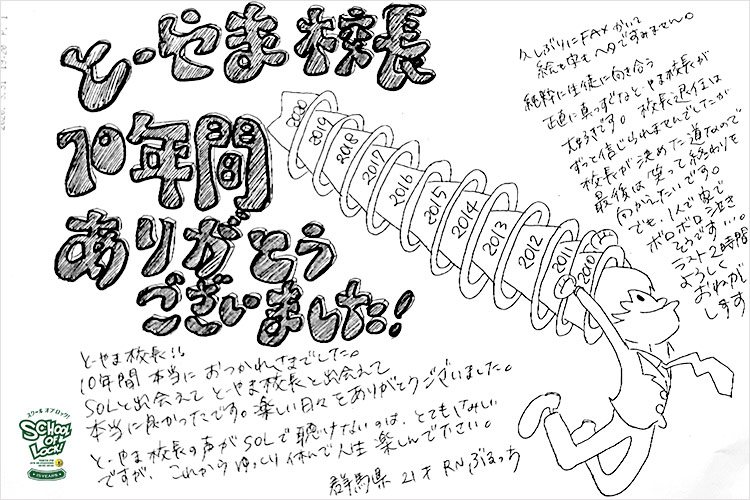 とーやま校長
10年間
ありがとう
ございました!
久しぶりにFAXかいて
絵も字もヘタですみません。
純粋に生徒に向き合う
正直に真っすぐなとーやま校長が
大好きです。校長退任は
ずっと信じられませんでしたが
校長が決めた道なので
最後は笑って終わりを
向かえたいです。
でも、1人で家で
ボロボロ泣き
そうです…。
ラスト2時間
よろしく
おねがい
します
2020
2019
2018
2017
2016
2015
2014
2013
2012
2011
2010
とーやま校長!!
10年間 本当に おつかれさまでした。
SOLと出会えて とーやま校長と出会えて
本当に良かったです。楽しい日々をありがとうございました。
とーやま校長の声がSOLで聴けないのは、とてもさみしい
ですが、これから ゆっくり休んで人生 楽しんでください。
群馬県 21才 RN ぶまっち
スクール オブ ロック!
SCHOOL
OF
LOCK!